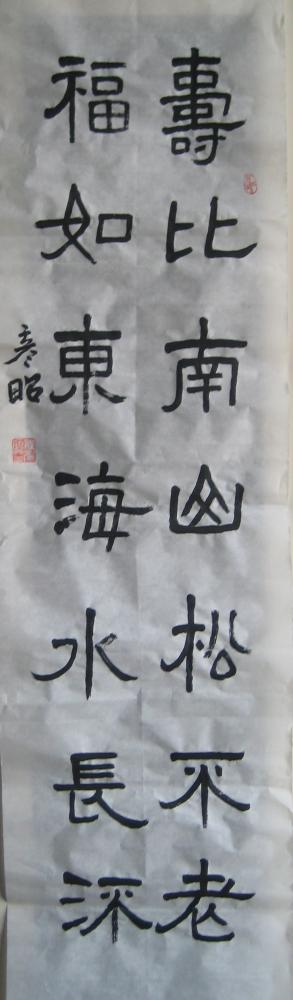 壽比南山松不老
福如東海水長深
彦昭